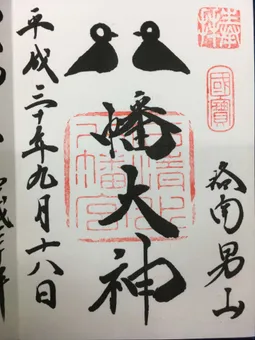 奉拝
國寶
洛南男山
八幡大神
石清水
八幡宮
平成三十年九月十八日